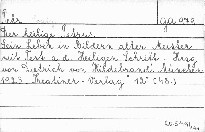 Der heilige Petrus.
Sein Leben in Bildern alter Meister
mit Text a. d. Heiligen Schrift. Hrsg.
von Dietrich von Hildebrand. München
1923. Theatiner-Verlag 12° (48 S.)